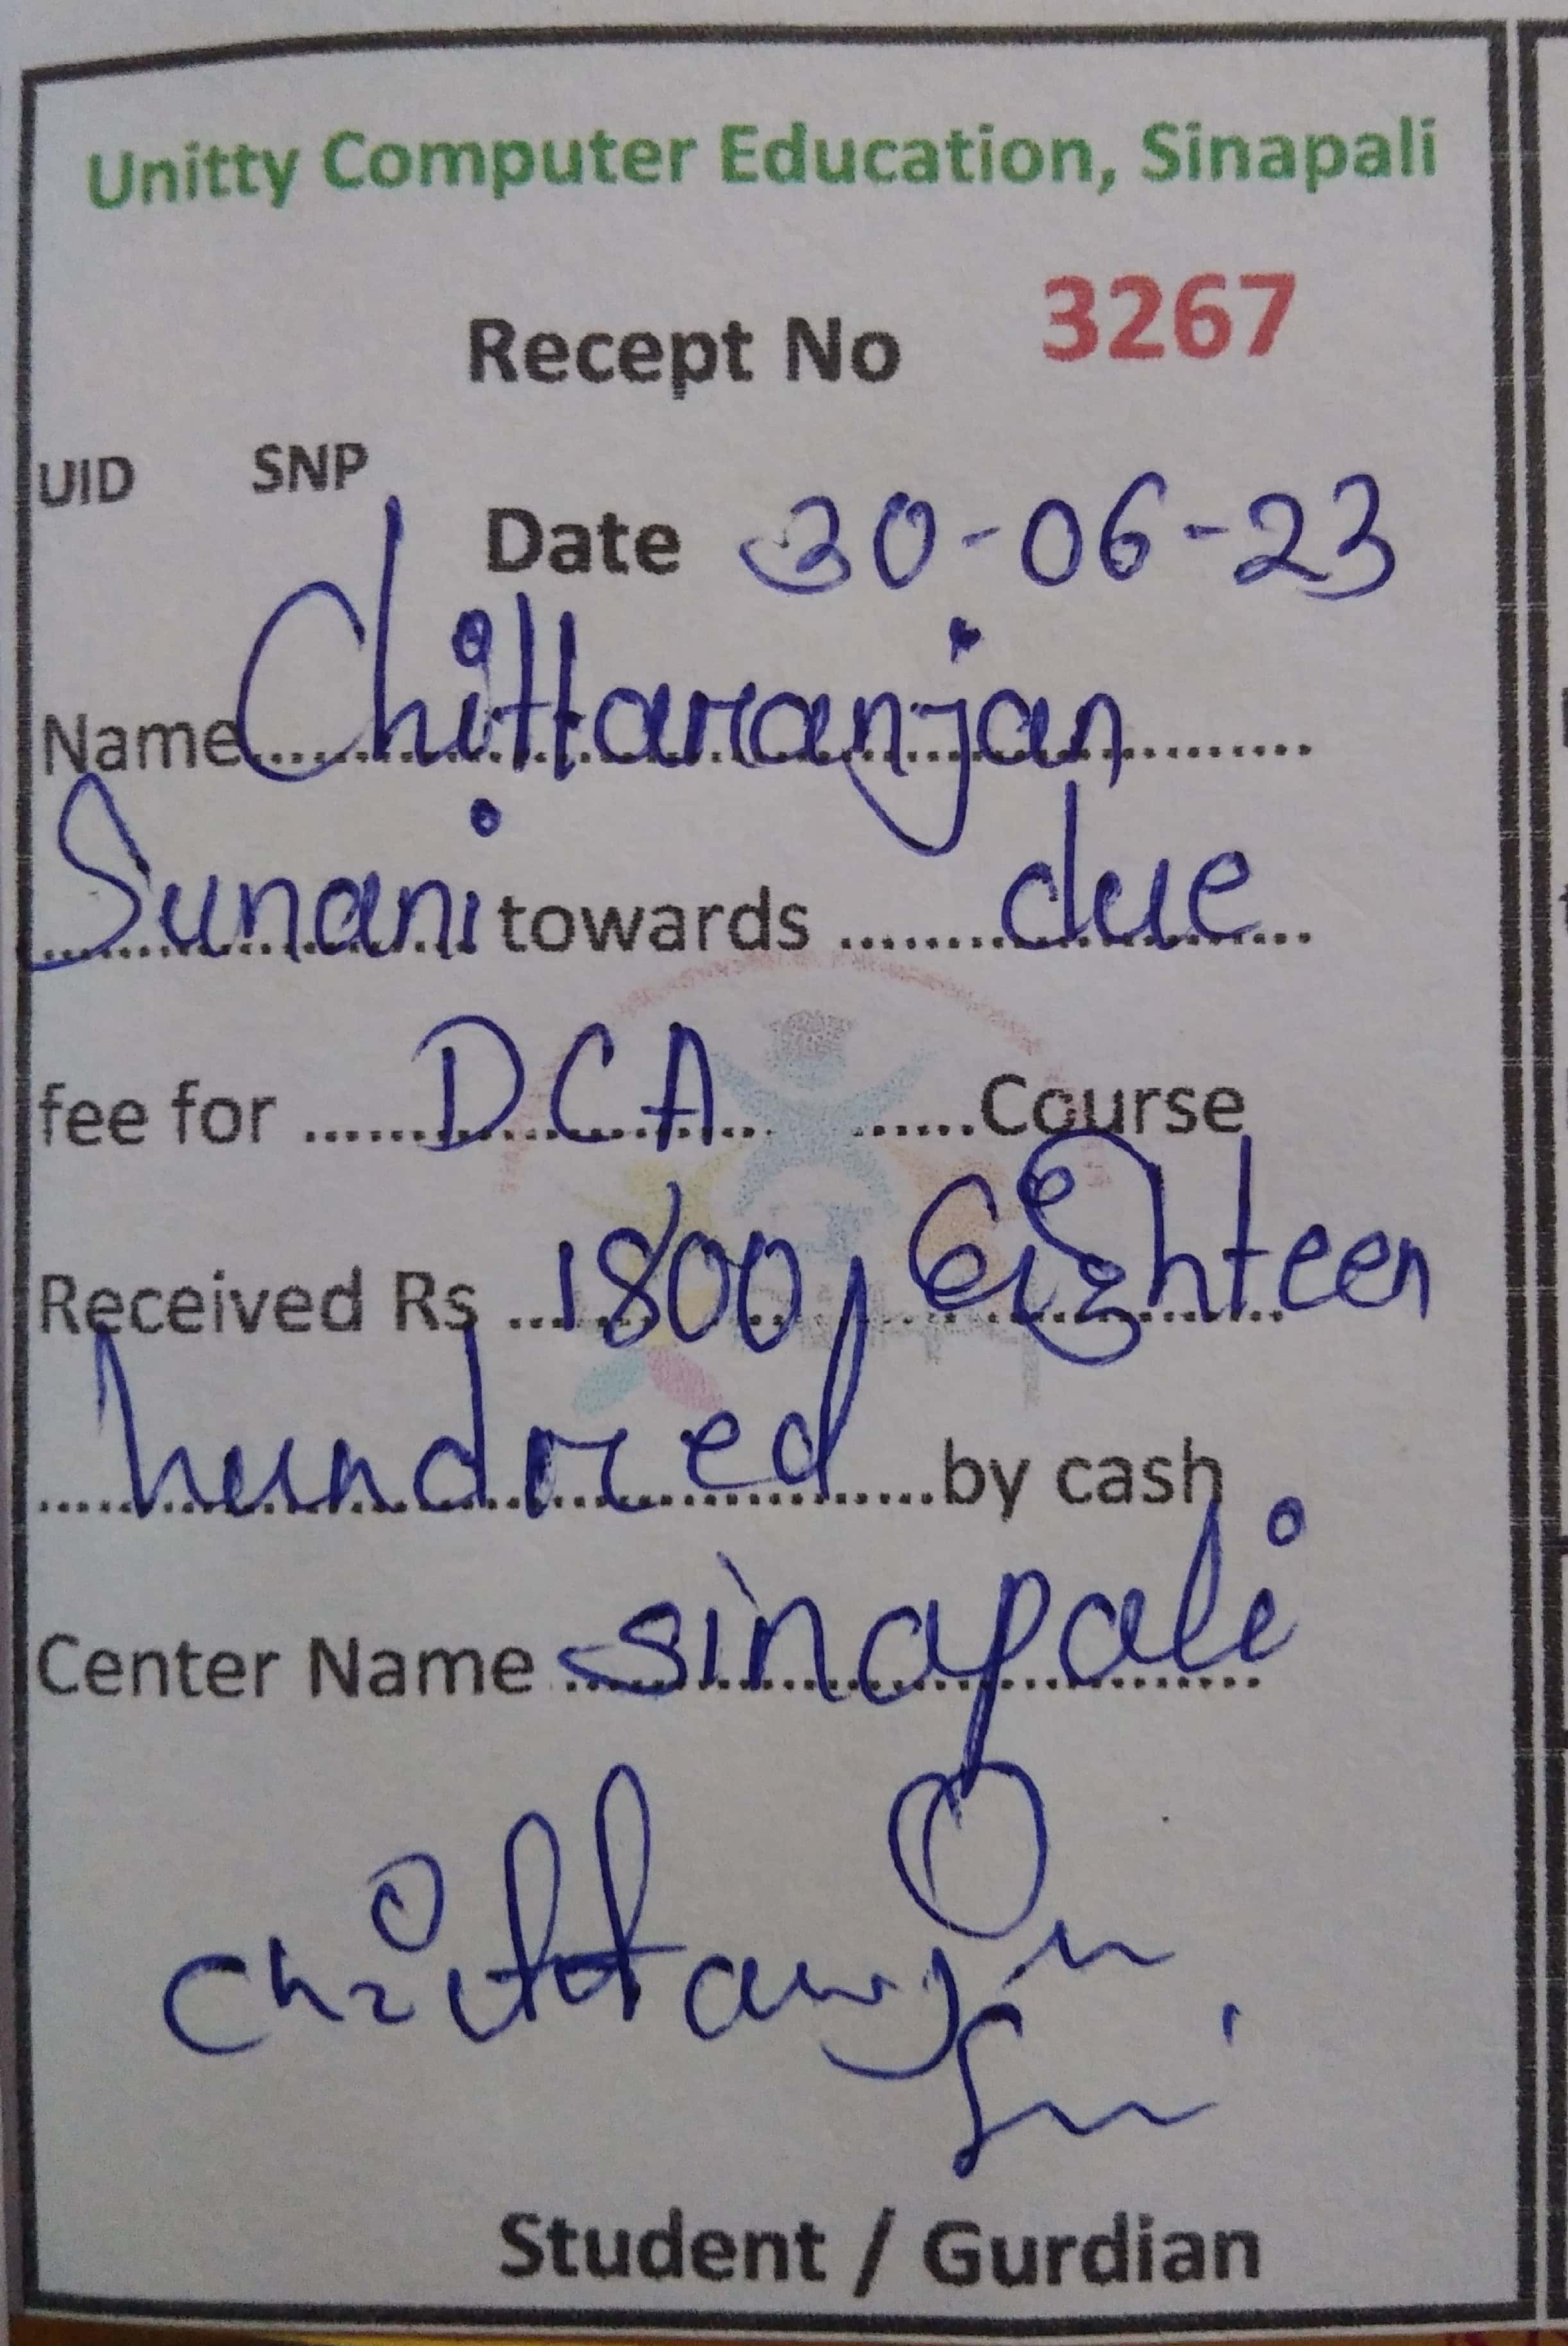 Unitty Computer Education, Sinapali
Recept No 3267
UID SNP
Date 30-06-23
Name Chittaranjan
Sunani towards due
fee for DCA Course
Received Rs 1800, Eighteen
hundred by cash
Center Name sinapali
Student / Gurdian